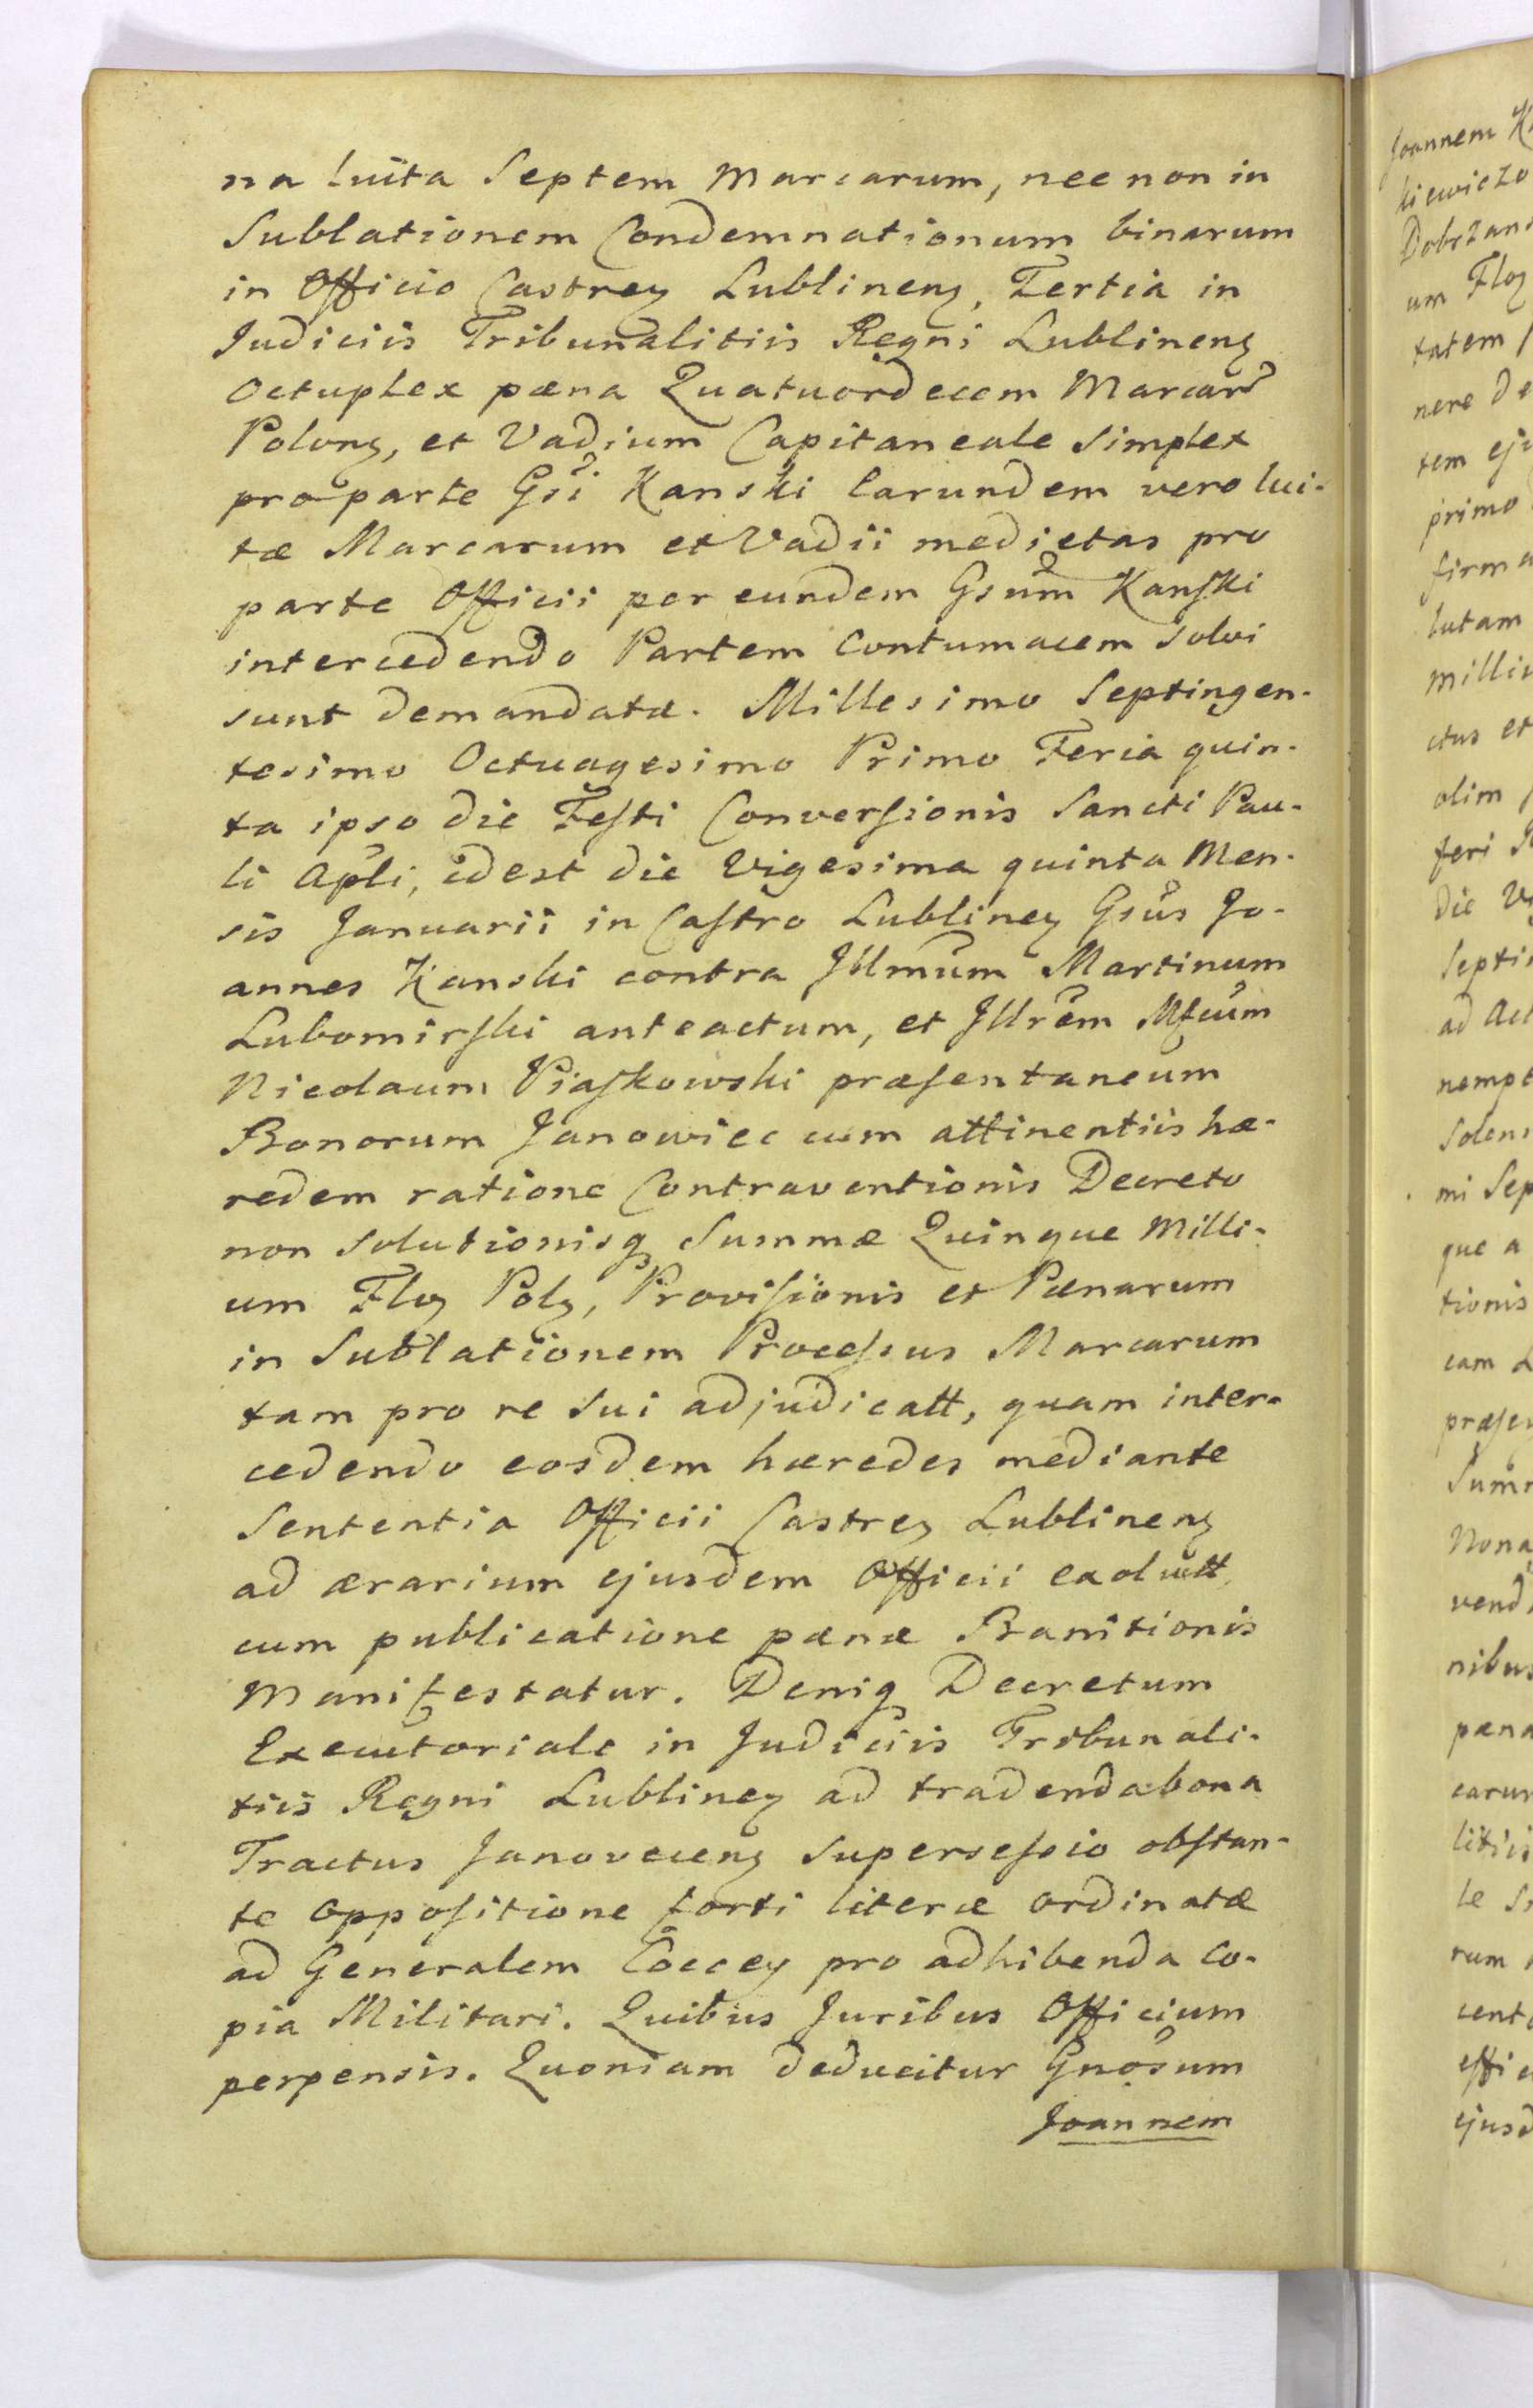 na luita Septem Marcarum, nec non in
Sublationem Condemnationum binarum
in Officio Castreɳ Lublinenɳ, Tertia in
Judiciis Tribunalitiis Regni Lublinenɳ
Octuplex pæna Quatuordecem Marcar̃
Polonɳ, et Vadium Capitaneale Simplex
pro parte Gsi Kanski Earundem vero lui-
tæ Marcarum et Vadii medietas pro
parte Officii per eundem Gsum Kanski
intercedendo Partem Contumacem solvi
sunt demandatæ. Millesimo Septingen-
tesimo Octuagesimo Primo Feria quin-
ta ipso die Festi Conversionis Sancti Pau-
li Apli, idest die Vigesima quinta Men-
sis Januarii in Castro Lublineɳ Gsus Jo-
annes Kanski contra Illmum Martinum
Lubomirski anteactum, et Illrem Mfcum
Nicolaum Piaskowski præsentaneum
Bonorum Janowiec cum attinentiis hæ-
redem ratione Contraventionis Decreto
non solutionisq Summæ Quinque Milli-
um Floɳ Polɳ, Provisionis et Pænarum
in Sublationem Processus Marcarum
tam pro re sui adjudicatt, quam inter-
cedendo eosdem hæredes mediante
Sententia Officii Castreɳ Lublinenɳ
ad ærarium ejusdem Officii exolutt
cum publicatione pænæ Banitionis
Manifestatur. Deniq Decretum
Executoriale in Judiciis Tribunali-
tiis Regni Lublineɳ ad tradenda bona
Tractus Janovecenɳ Supersessio obstan-
te oppositione forti literæ ordinatæ
ad Generalem Coeceɳ pro adhibenda Co-
pia Militari. Quibus Juribus Officium
perpensis. Quoniam deducitur Gnosum
Joannem
Joannem
kiewiczo
um Floɳ
tatem
nere de
tem eju
primo
firma
lutam
milliu
ctus et
olim
feri
die
Septi
ad Act
nempe
Solen
mi Sep
que a
tionis
eam
præsen
Summ
Nona
vend
nibus
pæna
earun
litii
le
rum
cent
offic
ejusd